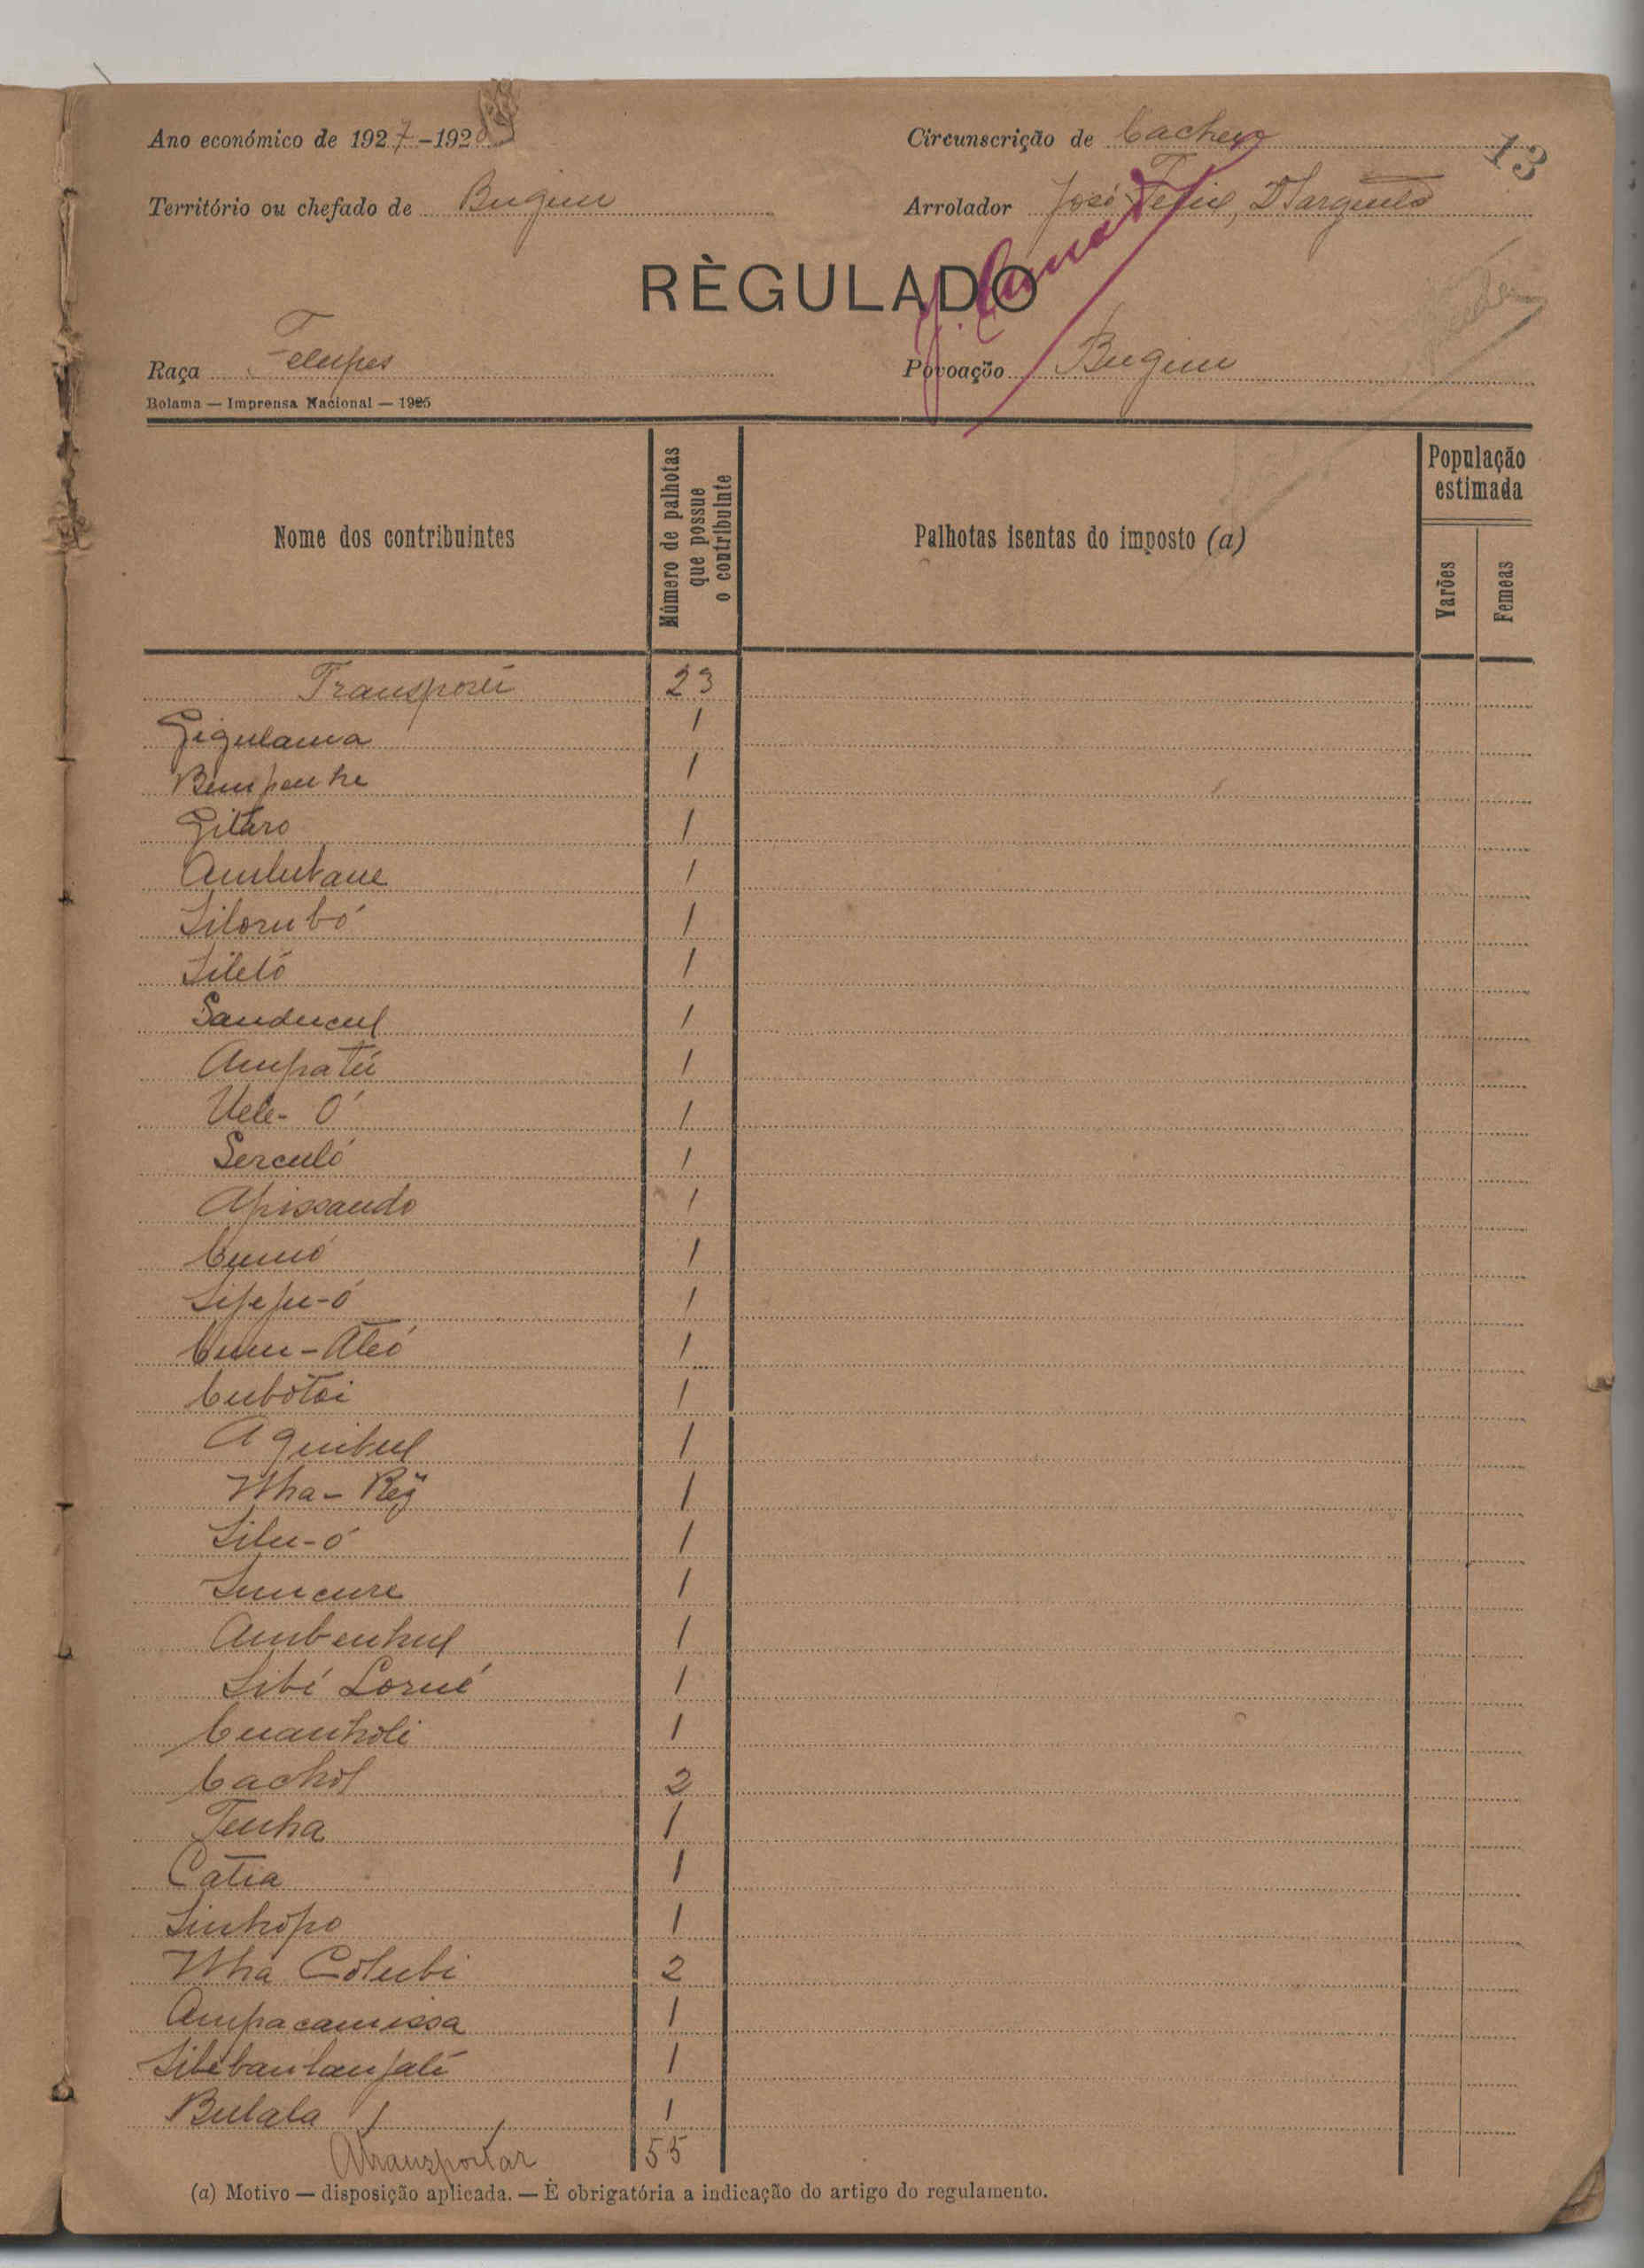 Ano económico de 1927-192
Circunscrição de Cacheu
13
Território ou chefado de Bugim
Arrolador José Felix, 2º Sargento
RÈGULADO
Raça Felupes
Povoação Bugim
Bolama — Imprensa Nacional — 1925
Nome dos contribuintes
Número de palhotas que possue o contribuinte
Palhotas isentas do imposto (a)
População estimada
Varões
Femeas
Transporte 23
Gigulama 1
Bumpenhe 1
Gitaro 1
Ambutane 1
Silorubó 1
Siletó 1
Sanducul 1
Ampatú 1
Uele-Ó 1
Serculó 1
Apissando 1
Cumó 1
Sipepu-ó 1
Cum-Aleó 1
Cubotoi 1
Aguibul 1
Nha-Rey 1
Silu-ó 1
Suncure 1
Ambenhul 1
Sibé Lorué 1
Cuanholi 1
Cachol 2
Tenha 1
Catia 1
Sinhopo 1
Nha Colubi 2
Ampacamissa 1
1
Bulala 1
A transportar 55
(a) Motivo — disposição aplicada. — È obrigatória a indicação do artigo do regulamento.